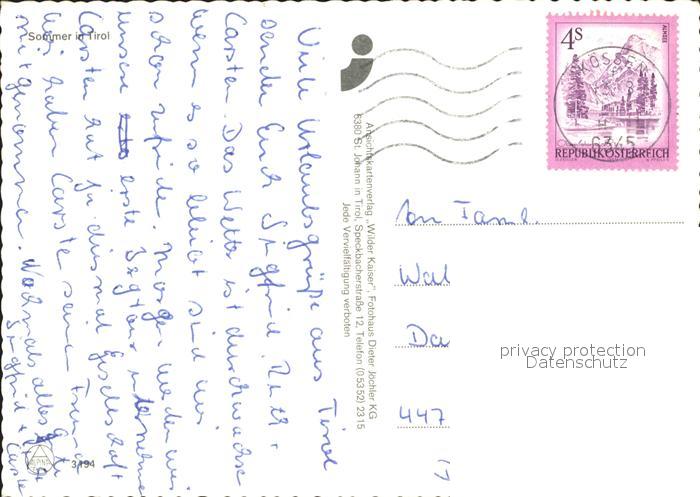 Sommer in Tirol
Viele Urlaubsgrüße aus Tirol
senden Euch Siegfried, Ruth +
Carsten. Das Wetter ist durchwachse
wenn es so bleibt sind wir
schon zufrieden. Morgen werden wir
unsere erste Bergtour unternehmen
Carsten hat ja diesmal Gesellschaft
wir haben Carsten seinen Freund
mitgenommen. Nochmals alles Gute
Siegfried +
Carste
Ansichtskartenverlag „Wilder Kaiser", Fotohaus Dieter Jöchler KG
6380 St. Johann in Tirol, Speckbacherstraße 12, Telefon (05352) 2315
Jede Vervielfältigung verboten
ALPINA
3194
4S
ALMSEE
REPUBLIK ÖSTERREICH
KÖSSEN
6345
An Fam.
Wal
Da
447
privacy protection
Datenschutz